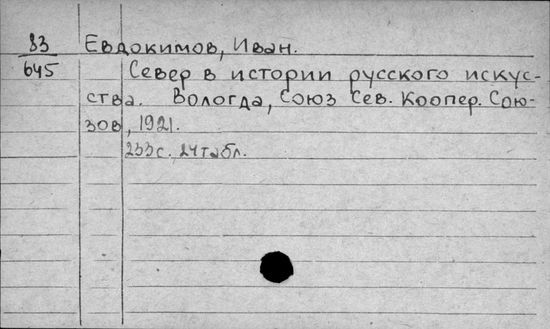 83 Евдокимов, Иван.
645 Север в истории русского искус-
ства. Вологда, Союз Сев. Коопер. Сою-
зов, 1921.
233с. 24 табл.